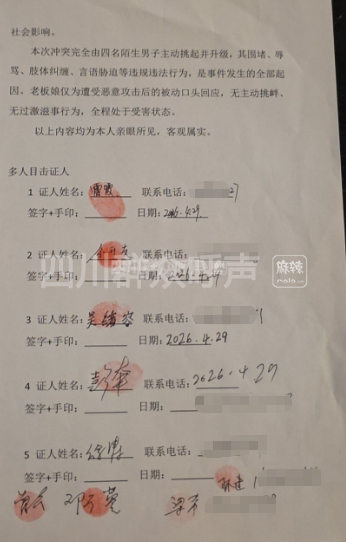 社会影响。
本次冲突完全由四名陌生男子主动挑起并升级，其围堵、辱
骂、肢体纠缠、言语胁迫等违规违法行为，是事件发生的全部起
因。老板娘仅为遭受恶意攻击后的被动口头回应，无主动挑衅、
无过激滋事行为，全程处于受害状态。
以上内容均为本人亲眼所见，客观属实。
多人目击证人
1 证人姓名： 联系电话：
签字+手印： 日期：2026.4.29
2 证人姓名： 联系电话：
签字+手印： 日期：
四川群众呼声
麻辣
3 证人姓名：吴 联系电话：
签字+手印： 日期：2026.4.29
4 证人姓名：彭 联系电话：2026.4.29
签字+手印： 日期：
5 证人姓名： 联系电话：
签字+手印： 日期：